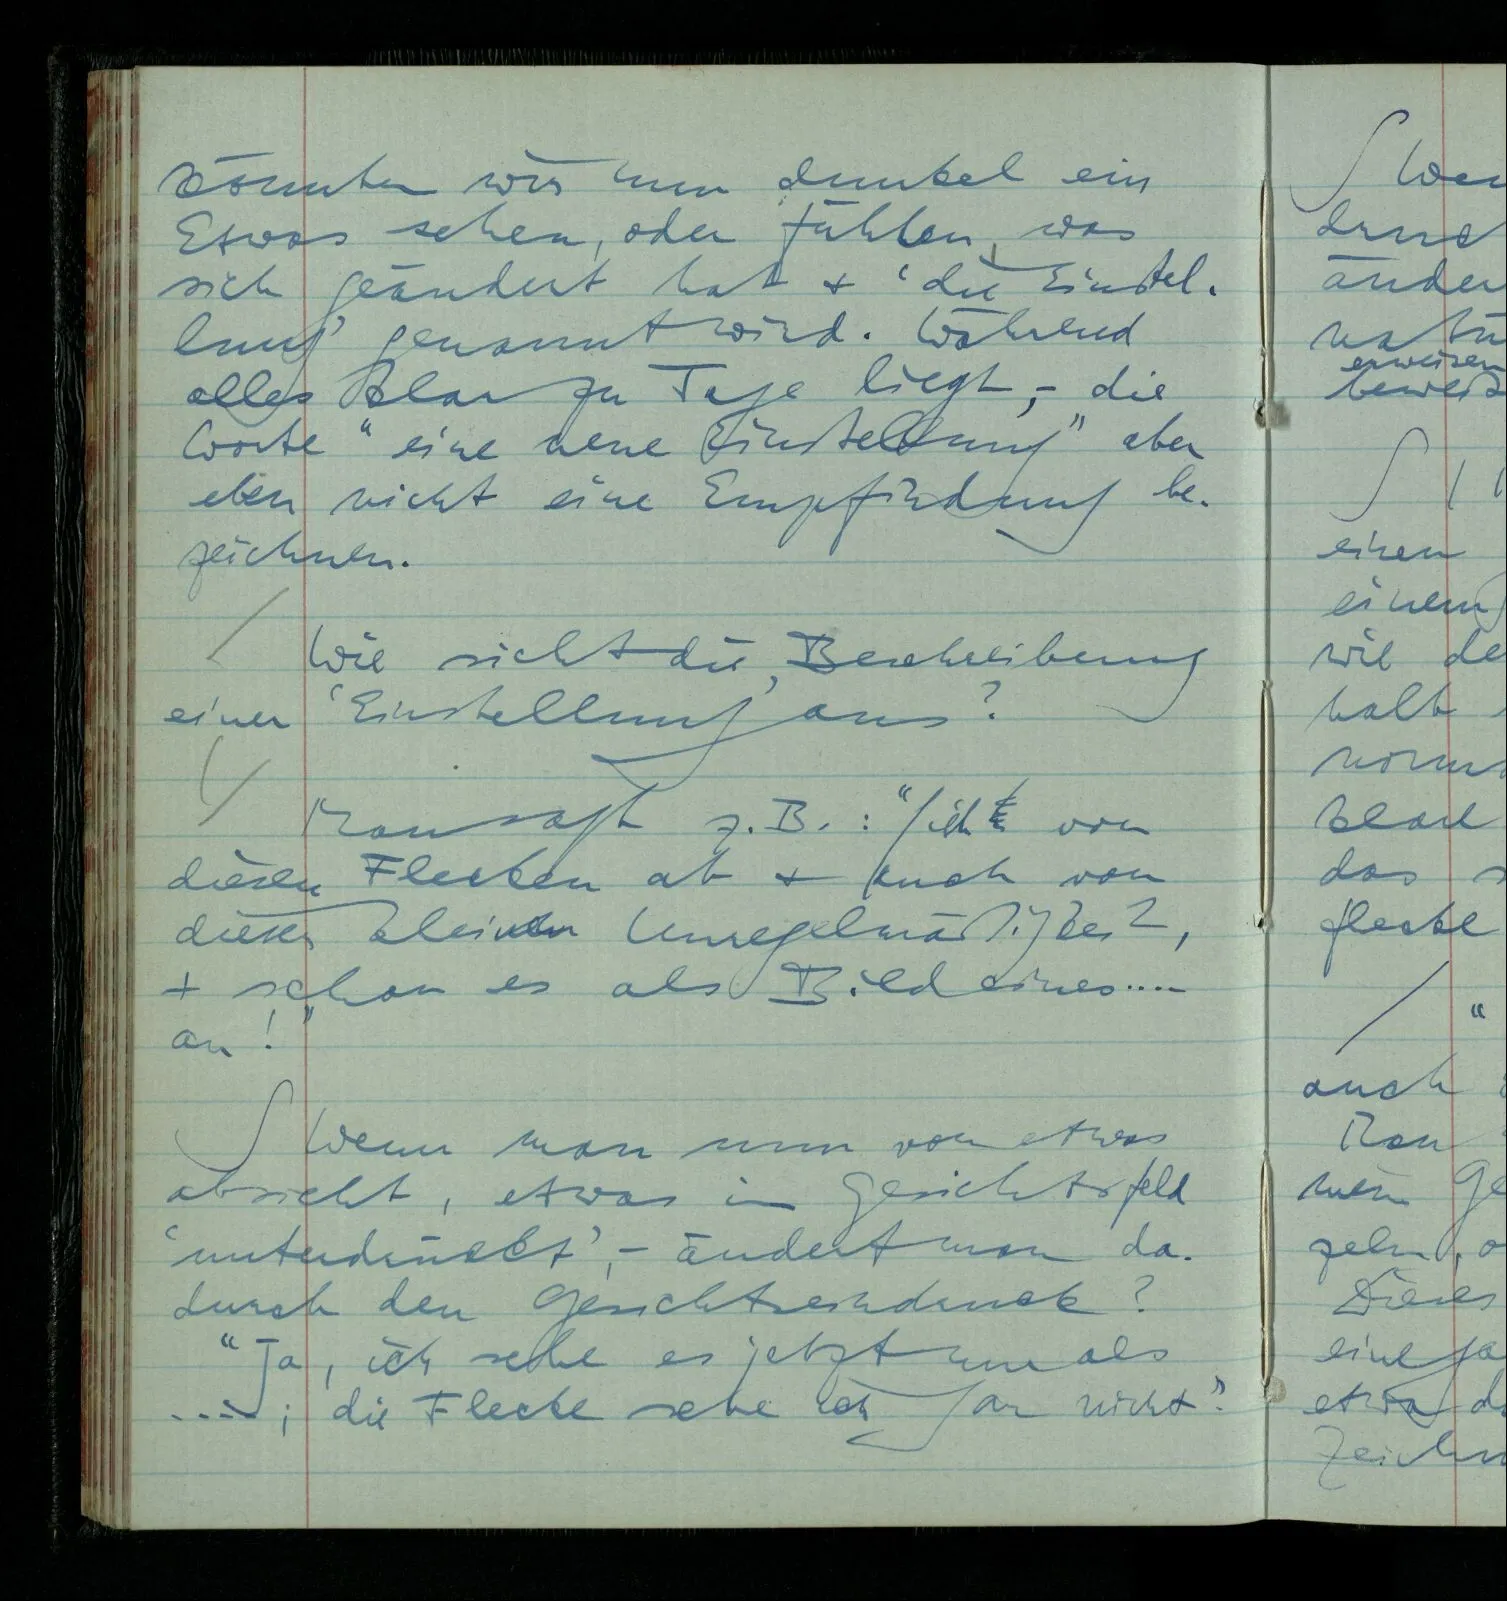 könnten wir nun dunkel ein
Etwas sehen, oder fühlen, was
sich geändert hat + ‘die Einstel-
lung’ genannt wird. Während
alles klar zu Tage liegt, – die
Worte “eine neue Einstellung” aber
eben nicht eine Empfindung be-
zeichnen.
/ Wie sieht die Beschreibung
einer ‘Einstellung’ aus?
Man sagt z.B.: “Sieh von
diesen Flecken ab + auch von
dieser kleinen Unregelmäßigkeit,
+ schau es als Bild eines....
an!”
∫ Wenn man nun von etwas
absieht, etwas im Gesichtsfeld
‘unterdrückt’, – ändert man da-
durch den Gesichtseindruck?
“Ja, ich sehe es jetzt nur als
....; die Flecke sehe ich gar nicht”.
∫ Wen
druc
änder
natü
erweisen
beweis
∫
einen
einem
wie de
halt
norm
klar
das s
flecke
/ “
auch
Man
mein Ge
geln, o
Dieses
eine ga
etwa d
Zeichn